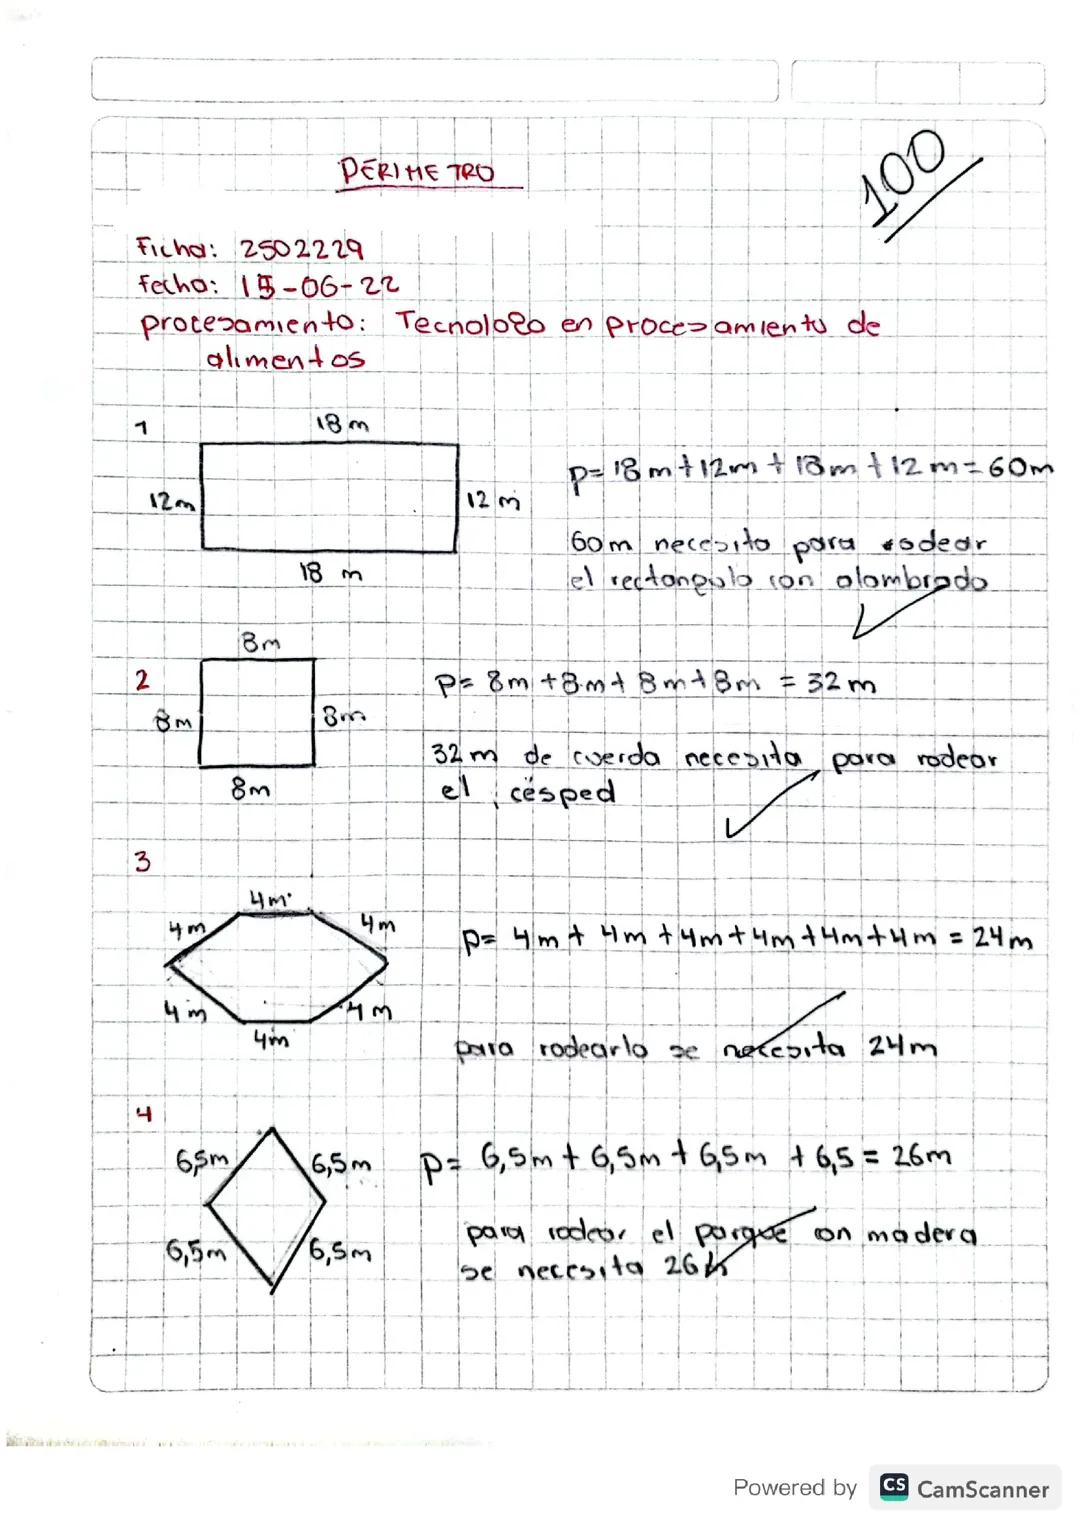 PERIMETRO
100
Ficha: 2502229
fecha: 15-06-22
procesamiento: Tecnologo en procesamiento de
alimentos
1
18 m
12m
12 m
18 m
p= 18 m + 12m + 18m + 12 m = 60m
60m necesito para rodear
el rectangulo con alambrado
2
8m
8m
8m
8m
p= 8m + 8m + 8m + 8m = 32 m
32 m de cuerda necesita para rodear
el césped
3
4m
4m
4m
4m
4m
4m
p= 4m + 4m + 4m + 4m + 4m + 4m = 24m
para rodearlo se necesita 24m
4
6,5m
6,5m
6,5m
6,5m
p= 6,5m + 6,5m + 6,5m + 6,5 = 26m
para rodear el parque con madera
se necesita 26
Powered by CS CamScanner